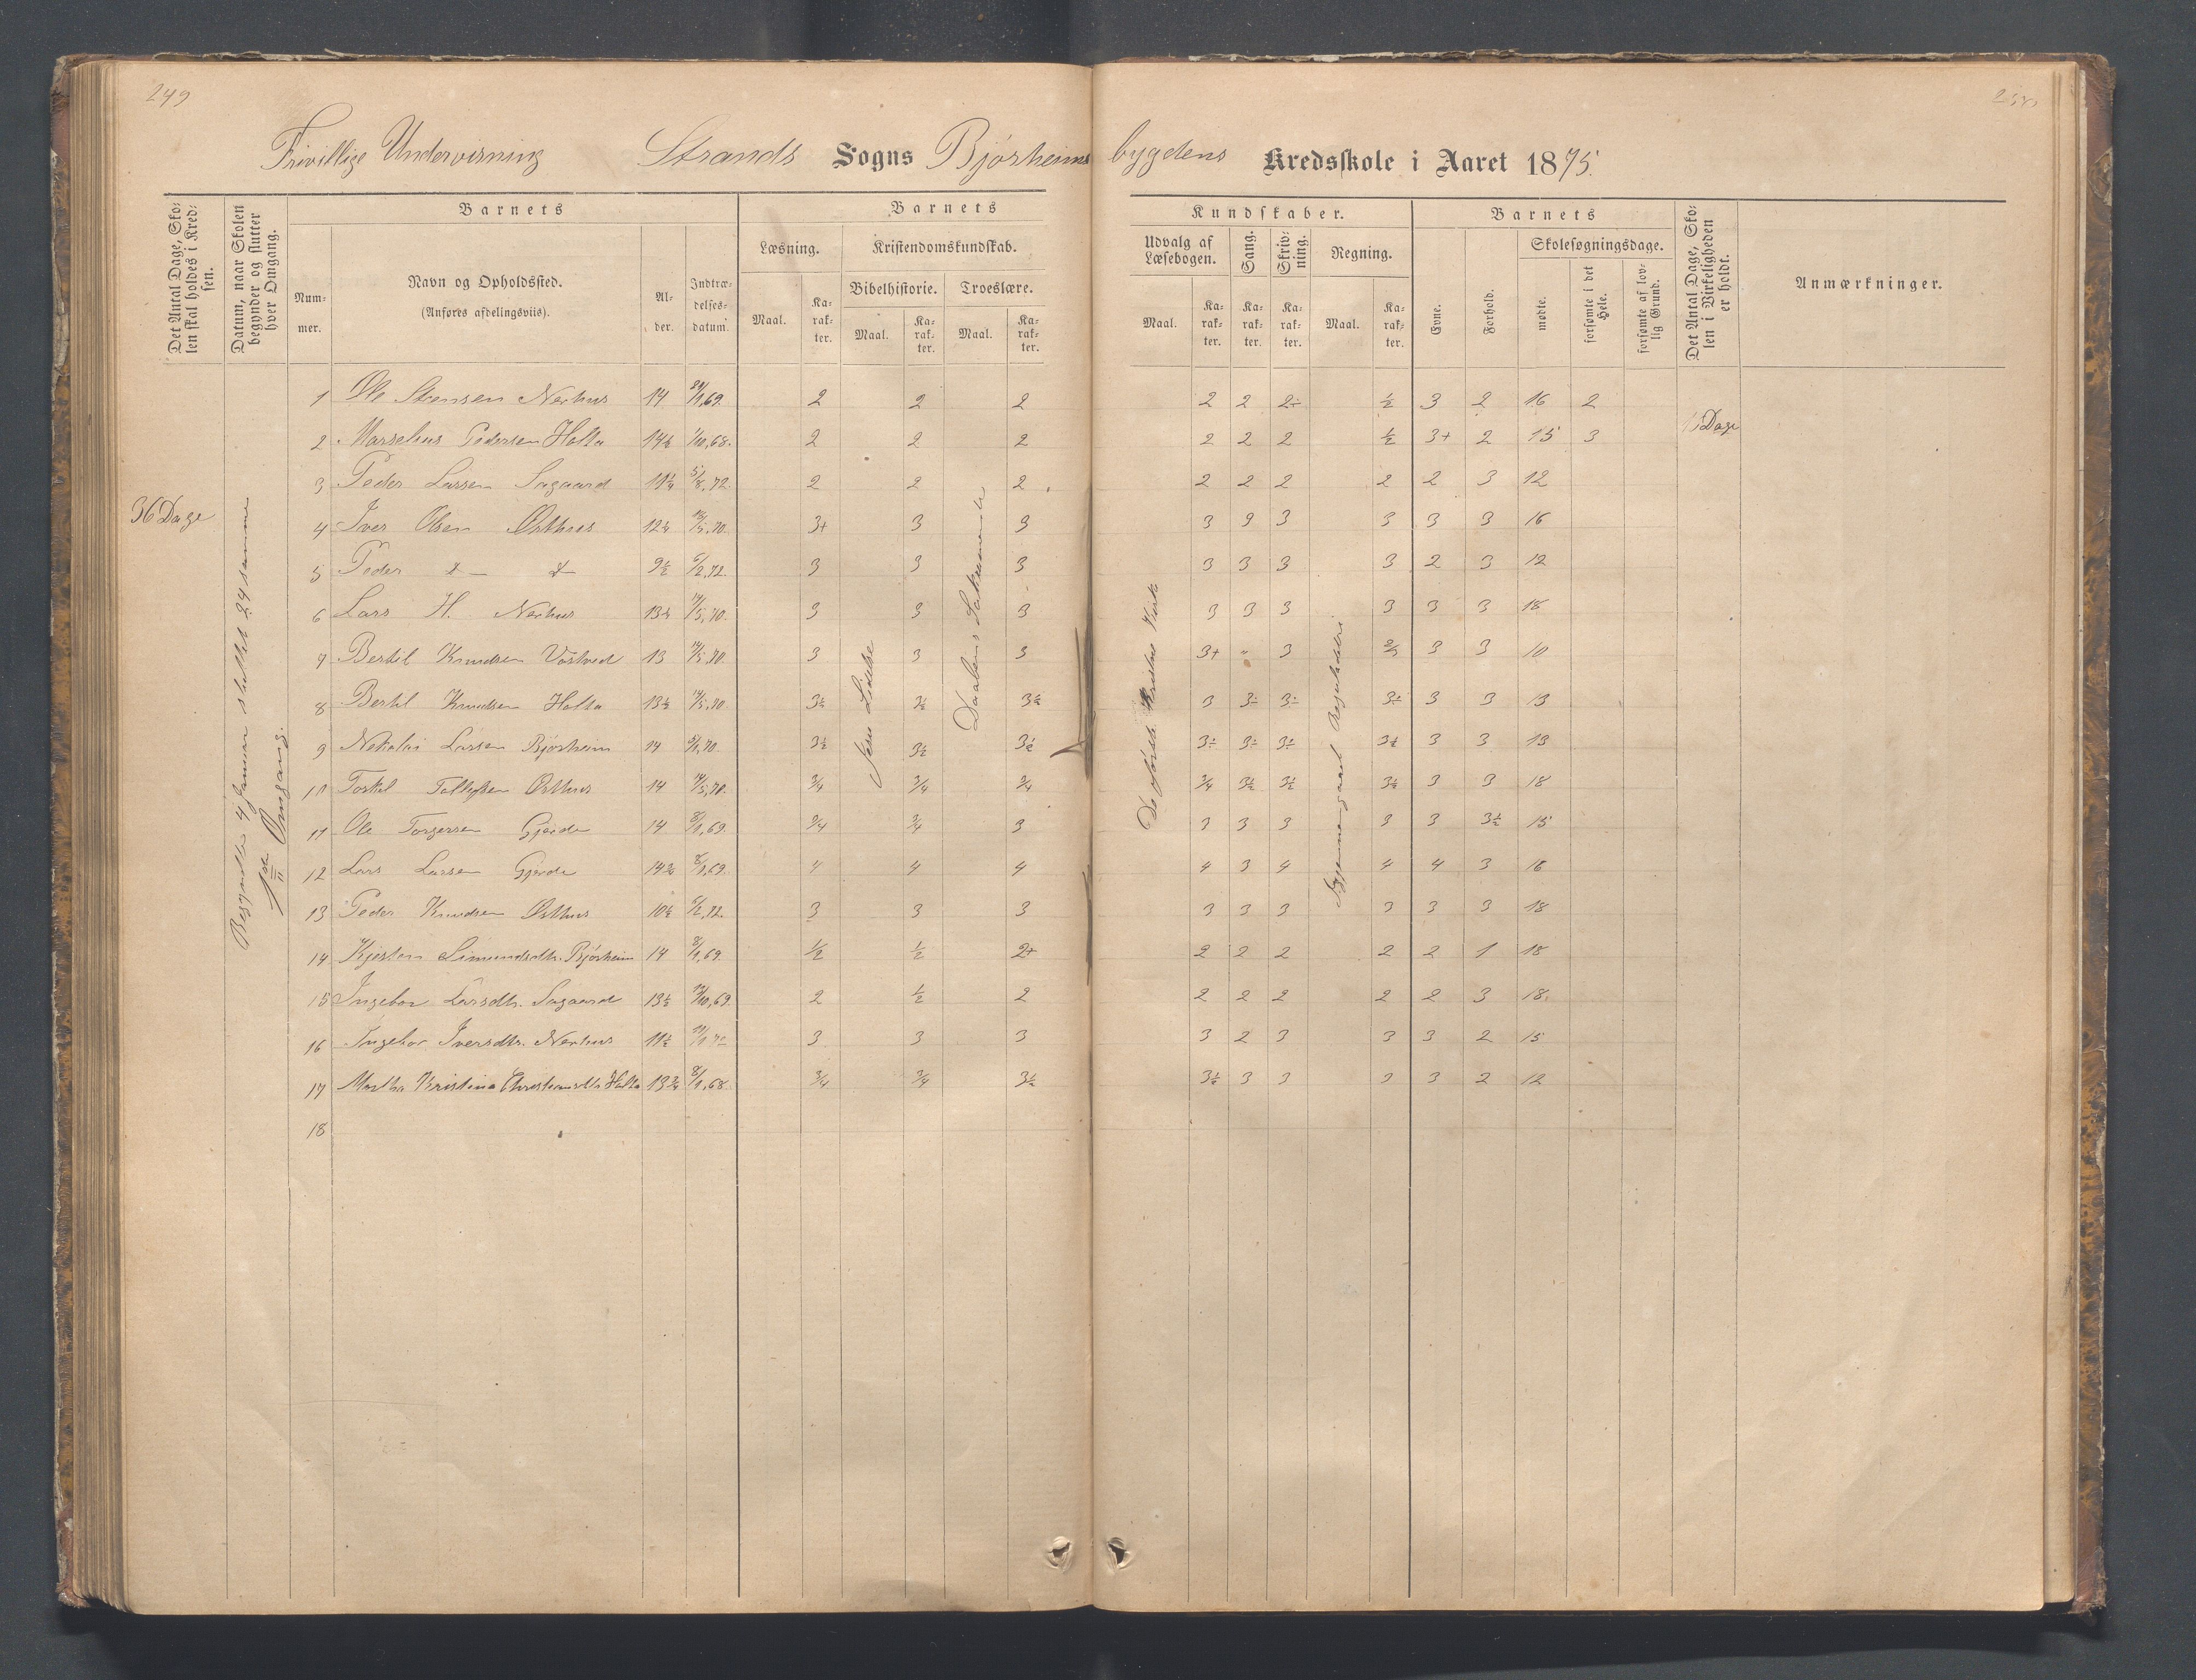 249
Frivillige Undervisning Strands Sogns Bjørheims bygdens Kredsskole i Aaret 1875.
Det Antal Dage, Skolen skal holdes i Kredsen.
Datum, naar Skolen begynder og slutter hver Omgang.
Barnets
Nummer.
Navn og Opholdssted.
(Anføres afdelingsviis).
Alder.
Indtrædelsesdatum.
Barnets Kundskaber.
Læsning.
Maal. Karakter.
Kristendomskundskab.
Bibelhistorie. Troeslære.
Maal. Karakter. Maal. Karakter.
Udvalg af Læsebogen.
Maal. Karakter.
Sang. Karakter.
Skrivning. Karakter.
Regning.
Maal. Karakter.
Barnets
Evne. Forhold.
Skolesøgningsdage.
mødte. forsømte i det Hele. forsømte af lovlig Grund.
Det Antal Dage, Skolen i Virkeligheden er holdt.
Anmærkninger.
36 Dage
Begyndte 4 Januar sluttet 29 samme
1ste Omgang.
Jesu Lidelse
Daabens Sakramente
Gjennemgaaet Reguladetri
1 Ole Steensen Nerhus 14 2 2 2 2 2 2÷ ½ 3 2 16 2
2 Marselius Pedersen Holta 14½ 1/10,68. 2 2 2 2 2 2 ½ 3+ 2 15 3 Dage
3 Peder Larsen Sagaard 11¼ 5/8,72. 2 2 2 2 2 2 2 2 3 12
4 Iver Olsen Østhus 12½ 3+ 3 3 3 3 3 3 3 3 16
5 Peder — 9½ 6/2,72. 3 3 3 3 3 3 3 2 3 12
6 Lars H. Nerhus 13½ 14/5,70. 3 3 3 3 3 3 3 3 3 18
7 Bertil Knudsen Vostved 13 14/5,70. 3 3 3 3+ " 3 2/3 3 3 10
8 Bertil Knudsen Holta 13½ 14/5,70 3½ 3½ 3½ 3 3÷ 3÷ 3÷ 3 3 13
9 Nikolai Larsen Bjørheim 14 3½ 3½ 3½ 3÷ 3÷ 3÷ 3½ 3 3 13
10 Torkel Tollefsen Østhus 14 14/5,70. 3/4 3/4 3/4 3/4 3½ 3½ 3½ 3 3 18
11 Ole Torgersen Gjeide 14 8/1,69. 3/4 3/4 3 3 3 3 3 3 3½ 15
12 Lars Larsen Gjeide 14¾ 8/1,69. 4 4 4 4 3 4 4 4 3 16
13 Peder Knudsen Østhus 10½ 6/2,72. 3 3 3 3 3 3 3 3 3 18
14 Kjersten Simundsdtr. Bjørheim 14 8/1,69. ½ ½ 2+ 2 2 2 2 2 1 18
15 Ingebor Larsdtr. Sagaard 13½ 2 ½ 2 2 2 2 2 2 3 18.
16 Ingebor Iversdtr. Nerhus 11½ 3 3 3 3 2 3 3 3 2 15
17 Martha Kristina Christiansdtr Holta 13¾ 8/1,68. 3/4 3/4 3½ 3½ 3 3 3 3 2 12
18